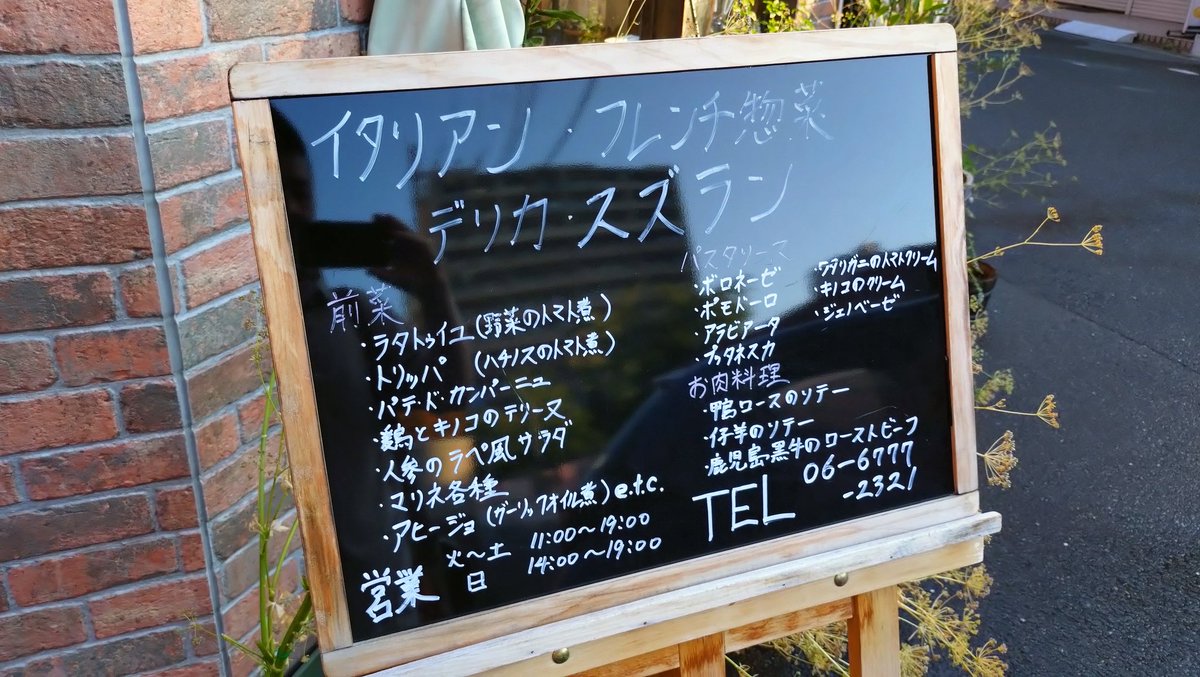 イタリアン・フレンチ惣菜
デリカ・スズラン
前菜
・ラタトゥイユ(野菜のトマト煮)
・トリッパ (ハチノスのトマト煮)
・パテ・ド・カンパーニュ
・鶏とキノコのテリーヌ
・人参のラペ風サラダ
・マリネ各種
・アヒージョ(ガーリックオイル煮)e.t.c.
パスタソース
・ボロネーゼ
・ポモドーロ
・アラビアータ
・プッタネスカ
・ワタリガニのトマトクリーム
・キノコのクリーム
・ジェノベーゼ
お肉料理
・鴨ロースのソテー
・仔羊のソテー
・鹿児島・黒牛のローストビーフ
営業 火〜土 11:00〜19:00
日 14:00〜19:00
TEL 06-6777
-2321